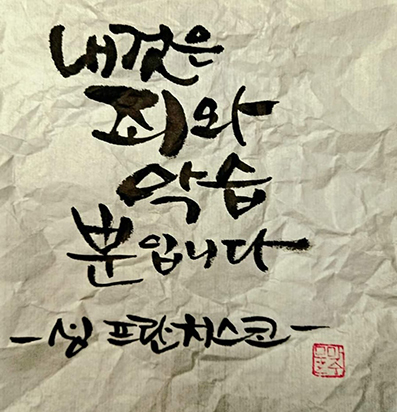 내것은
죄와
악습
뿐입니다
-성 프란치스코-